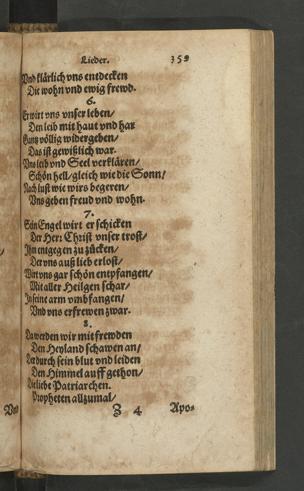 Lieder. 359
Vnd klärlich vns entdecken
Die wohn vnd ewig frewd.
6.
Er wirt vns vnser leben/
Den leib mit haut vnd har
Gantz völlig widergeben/
Das ist gewißlich war.
Vns leib vnd Seel verklären/
Schön hell/ gleich wie die Sonn/
Nach lust wie wirs begeren/
Vns geben freud vnd wohn.
7.
Sein Engel wirt er schicken
Der Herr Christ vnser trost/
Ihm entgegen zu zücken/
Der vns auß lieb erlost/
Wirt vns gar schön entpfangen/
Mit aller Heilgen schar/
In seine arm vmbfangen/
Vnd vns erfrewen zwar.
8.
Da werden wir mit frewden
Den Heyland schawen an/
Der durch sein blut vnd leiden
Den Himmel auff gethon/
Die liebe Patriarchen.
Propheten allzumal/
Z 4 Apo-